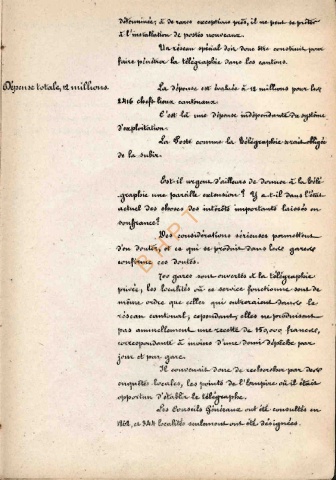 déterminée; à de rares exceptions près, il ne peut se prêter
à l'installation de postes nouveaux.
Un réseau spécial doit donc être construit pour
faire pénétrer la télégraphie dans les cantons.
Dépense totale, 12 millions.
La dépense est évaluée à 12 millions pour les
2416 chefs-lieux cantonaux.
C'est là une dépense indépendante du système
d'exploitation.
La Poste comme la Télégraphie serait obligée
de la subir.
Est-il urgent d'ailleurs de donner à la Télé
graphie une pareille extension? Y a-t-il dans l'état
actuel des choses des intérêts importants laissés en
souffrance?
Des considérations sérieuses permettent
d'en douter, et ce qui se produit dans les gares
confirme ces doutes.
700 gares sont ouvertes à la télégraphie
privée, les localités où ce service fonctionne sont de
même ordre que celles qui entreraient dans le
réseau cantonal; cependant, elles ne produisent
pas annuellement une recette de 150,000 francs,
correspondante à moins d'une demi dépêche par
jour et par gare.
Il convenait donc de rechercher par des
enquêtes locales, les points de l'Empire où il était
opportun d'établir le télégraphe.
Les Conseils Généraux ont été consultés en
1862, et 344 localités seulement ont été désignées.